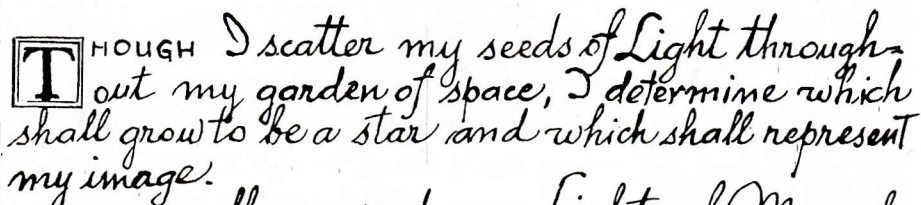 THOUGH I scatter my seeds of Light through=
out my garden of space, I determine which
shall grow to be a star and which shall represent
my image.